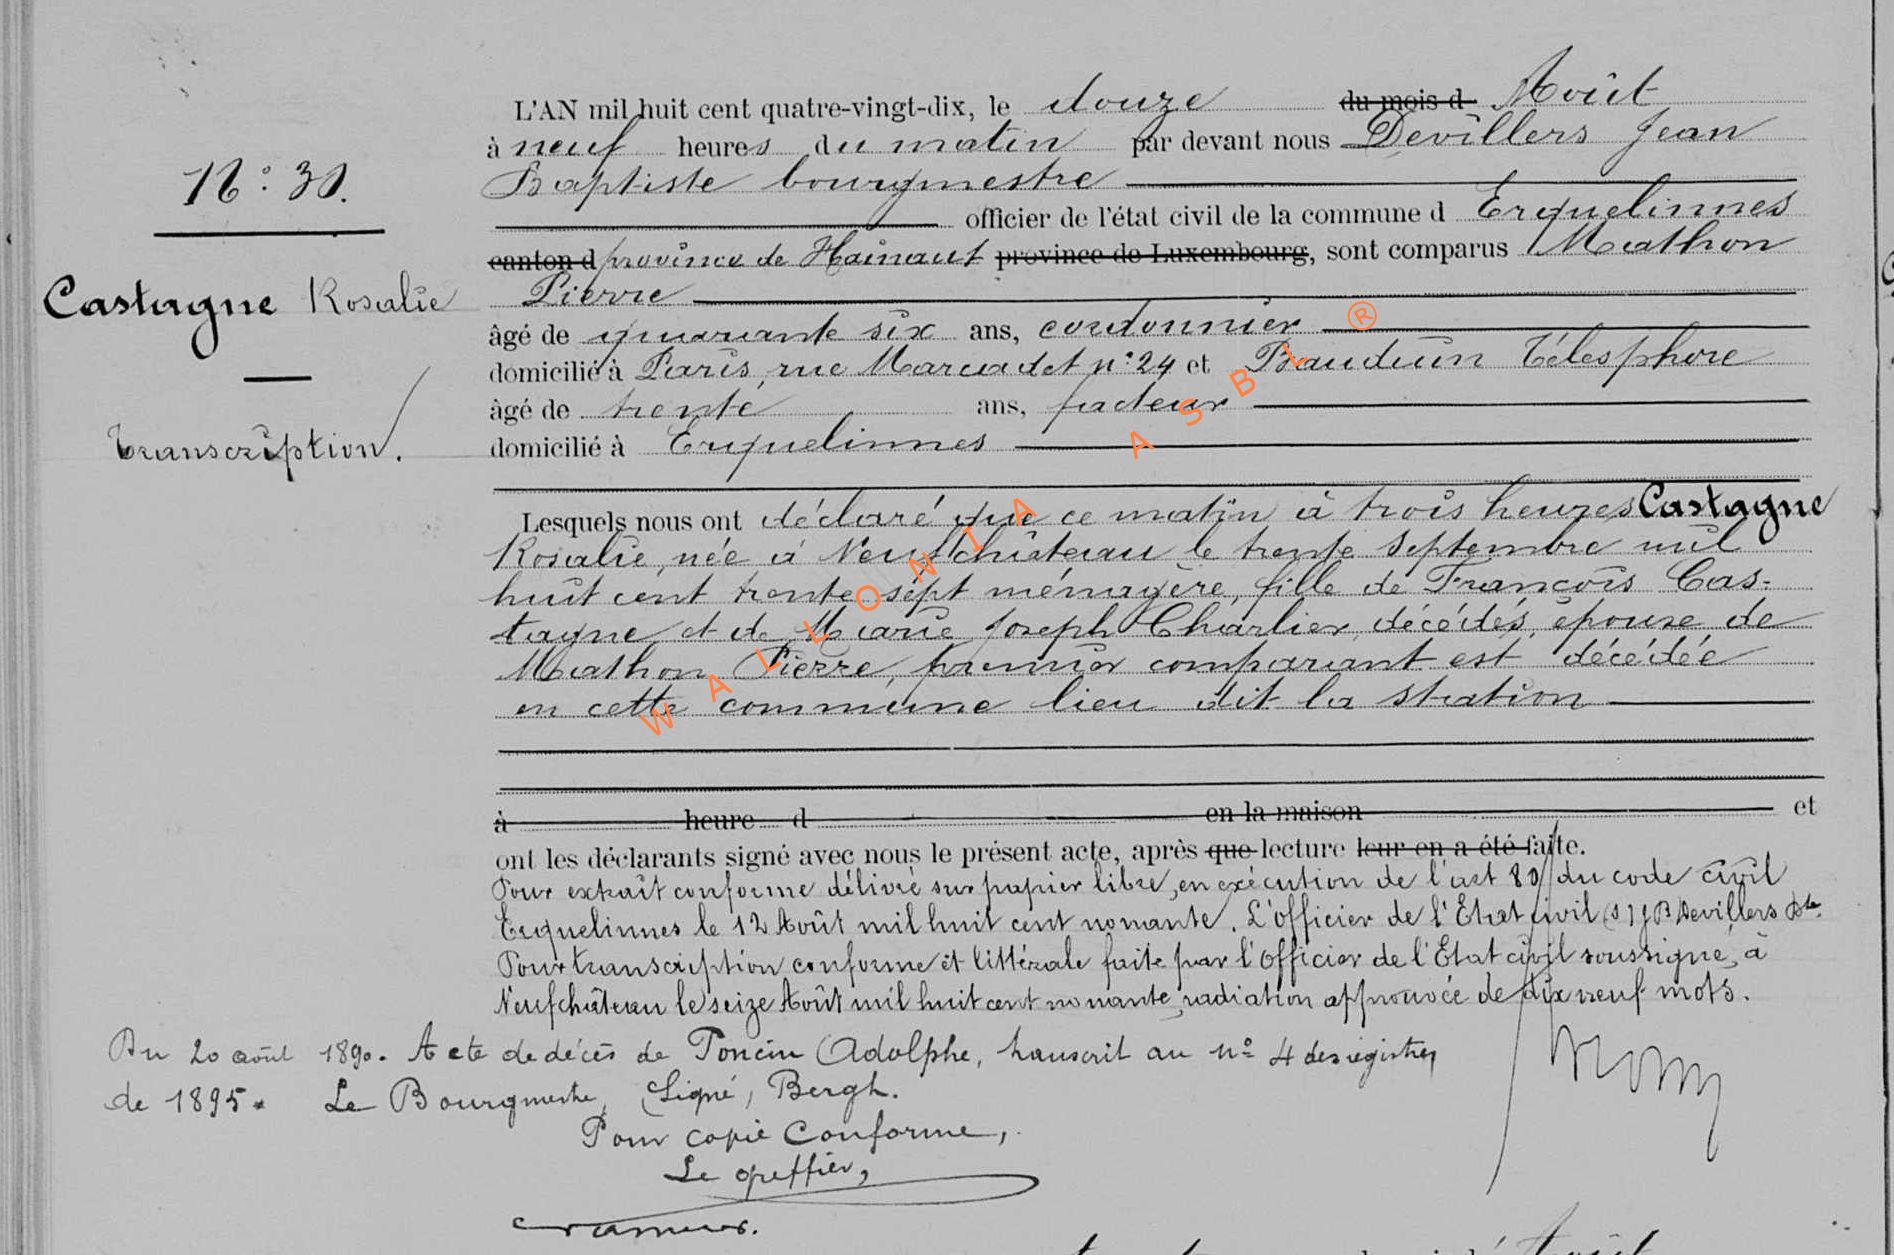 L'AN mil huit cent quatre-vingt-dix, le douze du mois d Août
à neuf heures du matin par devant nous Devillers Jean
Baptiste bourgmestre
officier de l'état civil de la commune d Erquelinnes
canton d province de Hainaut province de Luxembourg, sont comparus Mathon
Pierre
âgé de quarante six ans, cordonnier
domicilié à Paris, rue Marcadet n° 24 et Bauduin Télesphore
âgé de trente ans, facteur
domicilié à Erquelinnes
N° 30.
Castagne Rosalie
Transcription.
Lesquels nous ont déclaré que ce matin à trois heures Castagne
Rosalie, née à Neufchâteau le trente septembre mil
huit cent trente sept ménagère, fille de François Cas-
tagne et de Marie Joseph Charlier, décédés, épouse de
Mathon Pierre, premier comparant est décédée
en cette commune lieu dit la station
à heure d en la maison et
ont les déclarants signé avec nous le présent acte, après que lecture leur en a été faite.
Pour extrait conforme délivré sur papier libre, en exécution de l'art 80 du code civil
Erquelinnes le 12 Août mil huit cent nonante. L'officier de l'Etat civil (s) J B Devillers Bte.
Pour transcription conforme et littérale faite par l'Officier de l'Etat civil soussigné, à
Neufchâteau le seize Août mil huit cent nonante, radiation approuvée de dix neuf mots.
Du 20 août 1890. Acte de décès de Poncin Adolphe, transcrit au n° 4 des registres
de 1895. Le Bourgmestre, (Signé) Bergh.
Pour copie conforme,
Le greffier,
WALLONIA ASBL ®